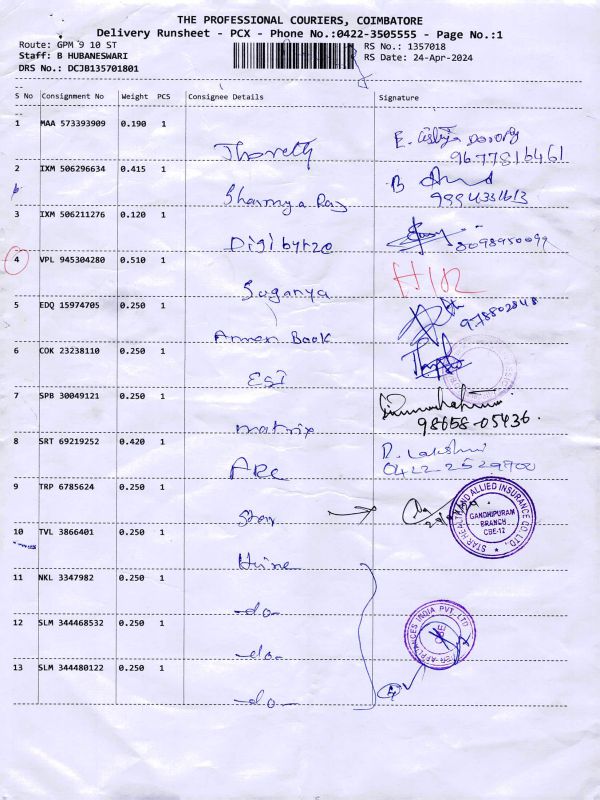 THE PROFESSIONAL COURIERS, COIMBATORE
Delivery Runsheet - PCX - Phone No.:0422-3505555 - Page No.:1
Route: GPM 9 10 ST
RS No.: 1357018
Staff: B HUBANESWARI
RS Date: 24-Apr-2024
DRS No.: DCJB135701801
S No Consignment No Weight PCS Consignee Details Signature
1 MAA 573393909 0.190 1
9677816461
2 IXM 506296634 0.415 1 Sharmya Raj
B
9994331613
3 IXM 506211276 0.120 1 Digibytze
8098950099
4 VPL 945304280 0.510 1 Suganya
5 EDQ 15974705 0.250 1 Book
978802848
6 COK 23238110 0.250 1 ESI
7 SPB 30049121 0.250 1 matrix
98658-05436.
8 SRT 69219252 0.420 1 ARC
D. Lakshmi
0422-2529700
9 TRP 6785624 0.250 1
STAR HEALTH AND ALLIED INSURANCE CO. LTD.
GANDHIPURAM
BRANCH
CBE-12
10 TVL 3866401 0.250 1
11 NKL 3347982 0.250 1 -do-
12 SLM 344468532 0.250 1 -do-
APPLIANCES INDIA PVT. LTD
13 SLM 344480122 0.250 1 -do-